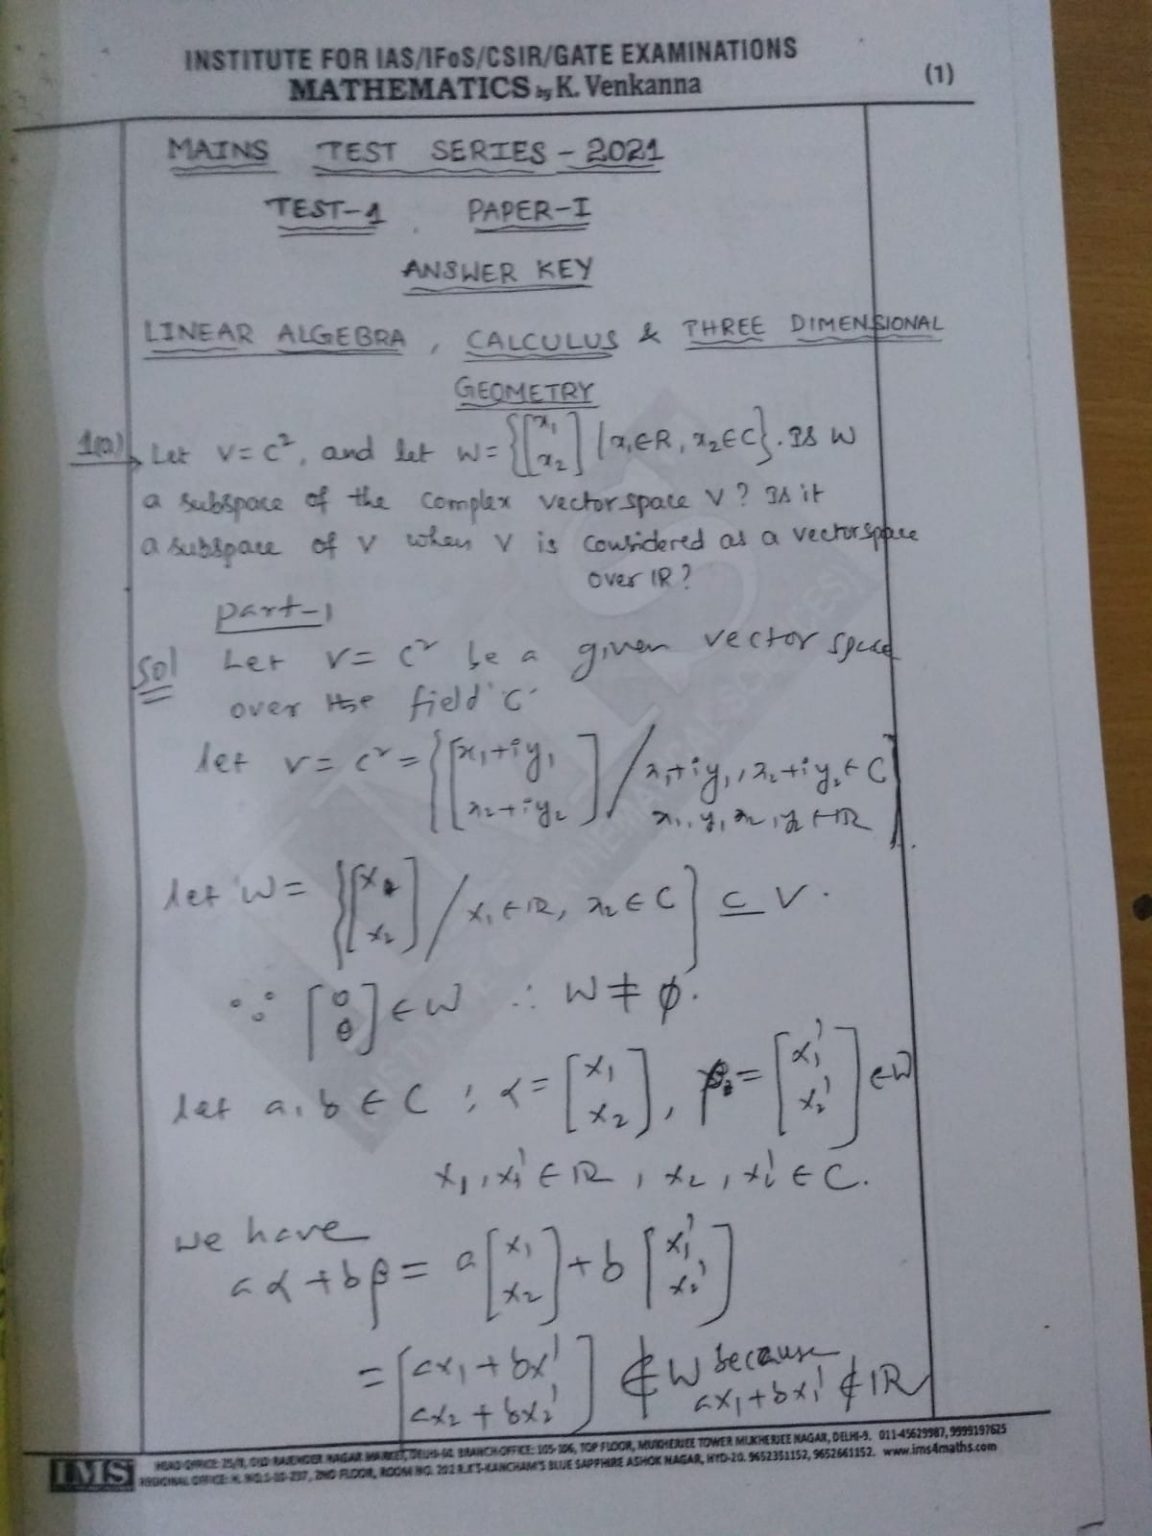 INSTITUTE FOR IAS/IFoS/CSIR/GATE EXAMINATIONS
MATHEMATICS by K. Venkanna
(1)
MAINS TEST SERIES - 2021
TEST-1 PAPER-I
ANSWER KEY
LINEAR ALGEBRA, CALCULUS & THREE DIMENSIONAL
GEOMETRY
1(a) Let V = C², and let W = {[x₁ x₂] / x₁∈R, x₂∈C}. Is W
a subspace of the complex vector space V? Is it
a subspace of V when V is considered as a vector space
over IR?
Part-1
Sol Let V = C² be a given vector space
over the field 'C'
let V = C² = {[x₁+iy₁ x₂+iy₂] / x₁+iy₁, x₂+iy₂ ∈ C
x₁, y₁, x₂, y₂ ∈ IR}.
let W = {[x₁ x₂] / x₁ ∈ IR, x₂ ∈ C} ⊆ V.
∵ [0 0] ∈ W ∴ W ≠ ϕ.
let a, b ∈ C ; α = [x₁ x₂], β = [x₁' x₂'] ∈ W
x₁, x₁' ∈ IR, x₂, x₂' ∈ C.
we have
aα + bβ = a[x₁ x₂] + b[x₁' x₂']
= [ax₁ + bx₁' ax₂ + bx₂'] ∉ W because
ax₁ + bx₁' ∉ IR
IMS
HEAD OFFICE: 25/8, OLD RAJENDER NAGAR MARKET, DELHI-60. BRANCH OFFICE: 105-106, TOP FLOOR, MUKHERJEE TOWER MUKHERJEE NAGAR, DELHI-9. 011-45629987, 9999197625
REGIONAL OFFICE: H. NO. 1-10-237, 2ND FLOOR, ROOM NO. 202 R.K'S-KANCHAM'S BLUE SAPPHIRE ASHOK NAGAR, HYD-20. 9652351152, 9652661152. www.ims4maths.com